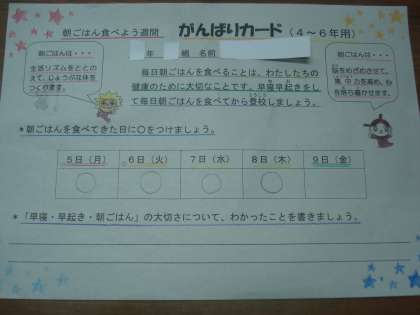 朝ごはん食べよう週間 がんばりカード (４～６年用)
年 組 名前
朝ごはんは・・・
生活リズムをととの
えて、じょうぶな体を
つくります。
毎日朝ごはんを食べることは、わたしたちの
健康のために大切なことです。早寝早起きをし
て毎日朝ごはんを食べてから登校しましょう。
朝ごはんは・・・
脳をめざめさせて、
集中力を高め、心
を落ち着かせます。
＊朝ごはんを食べてきた日に○をつけましょう。
５日（月） ６日（火） ７日（水） ８日（木） ９日（金）
＊「早寝・早起き・朝ごはん」の大切さについて、わかったことを書きましょう。